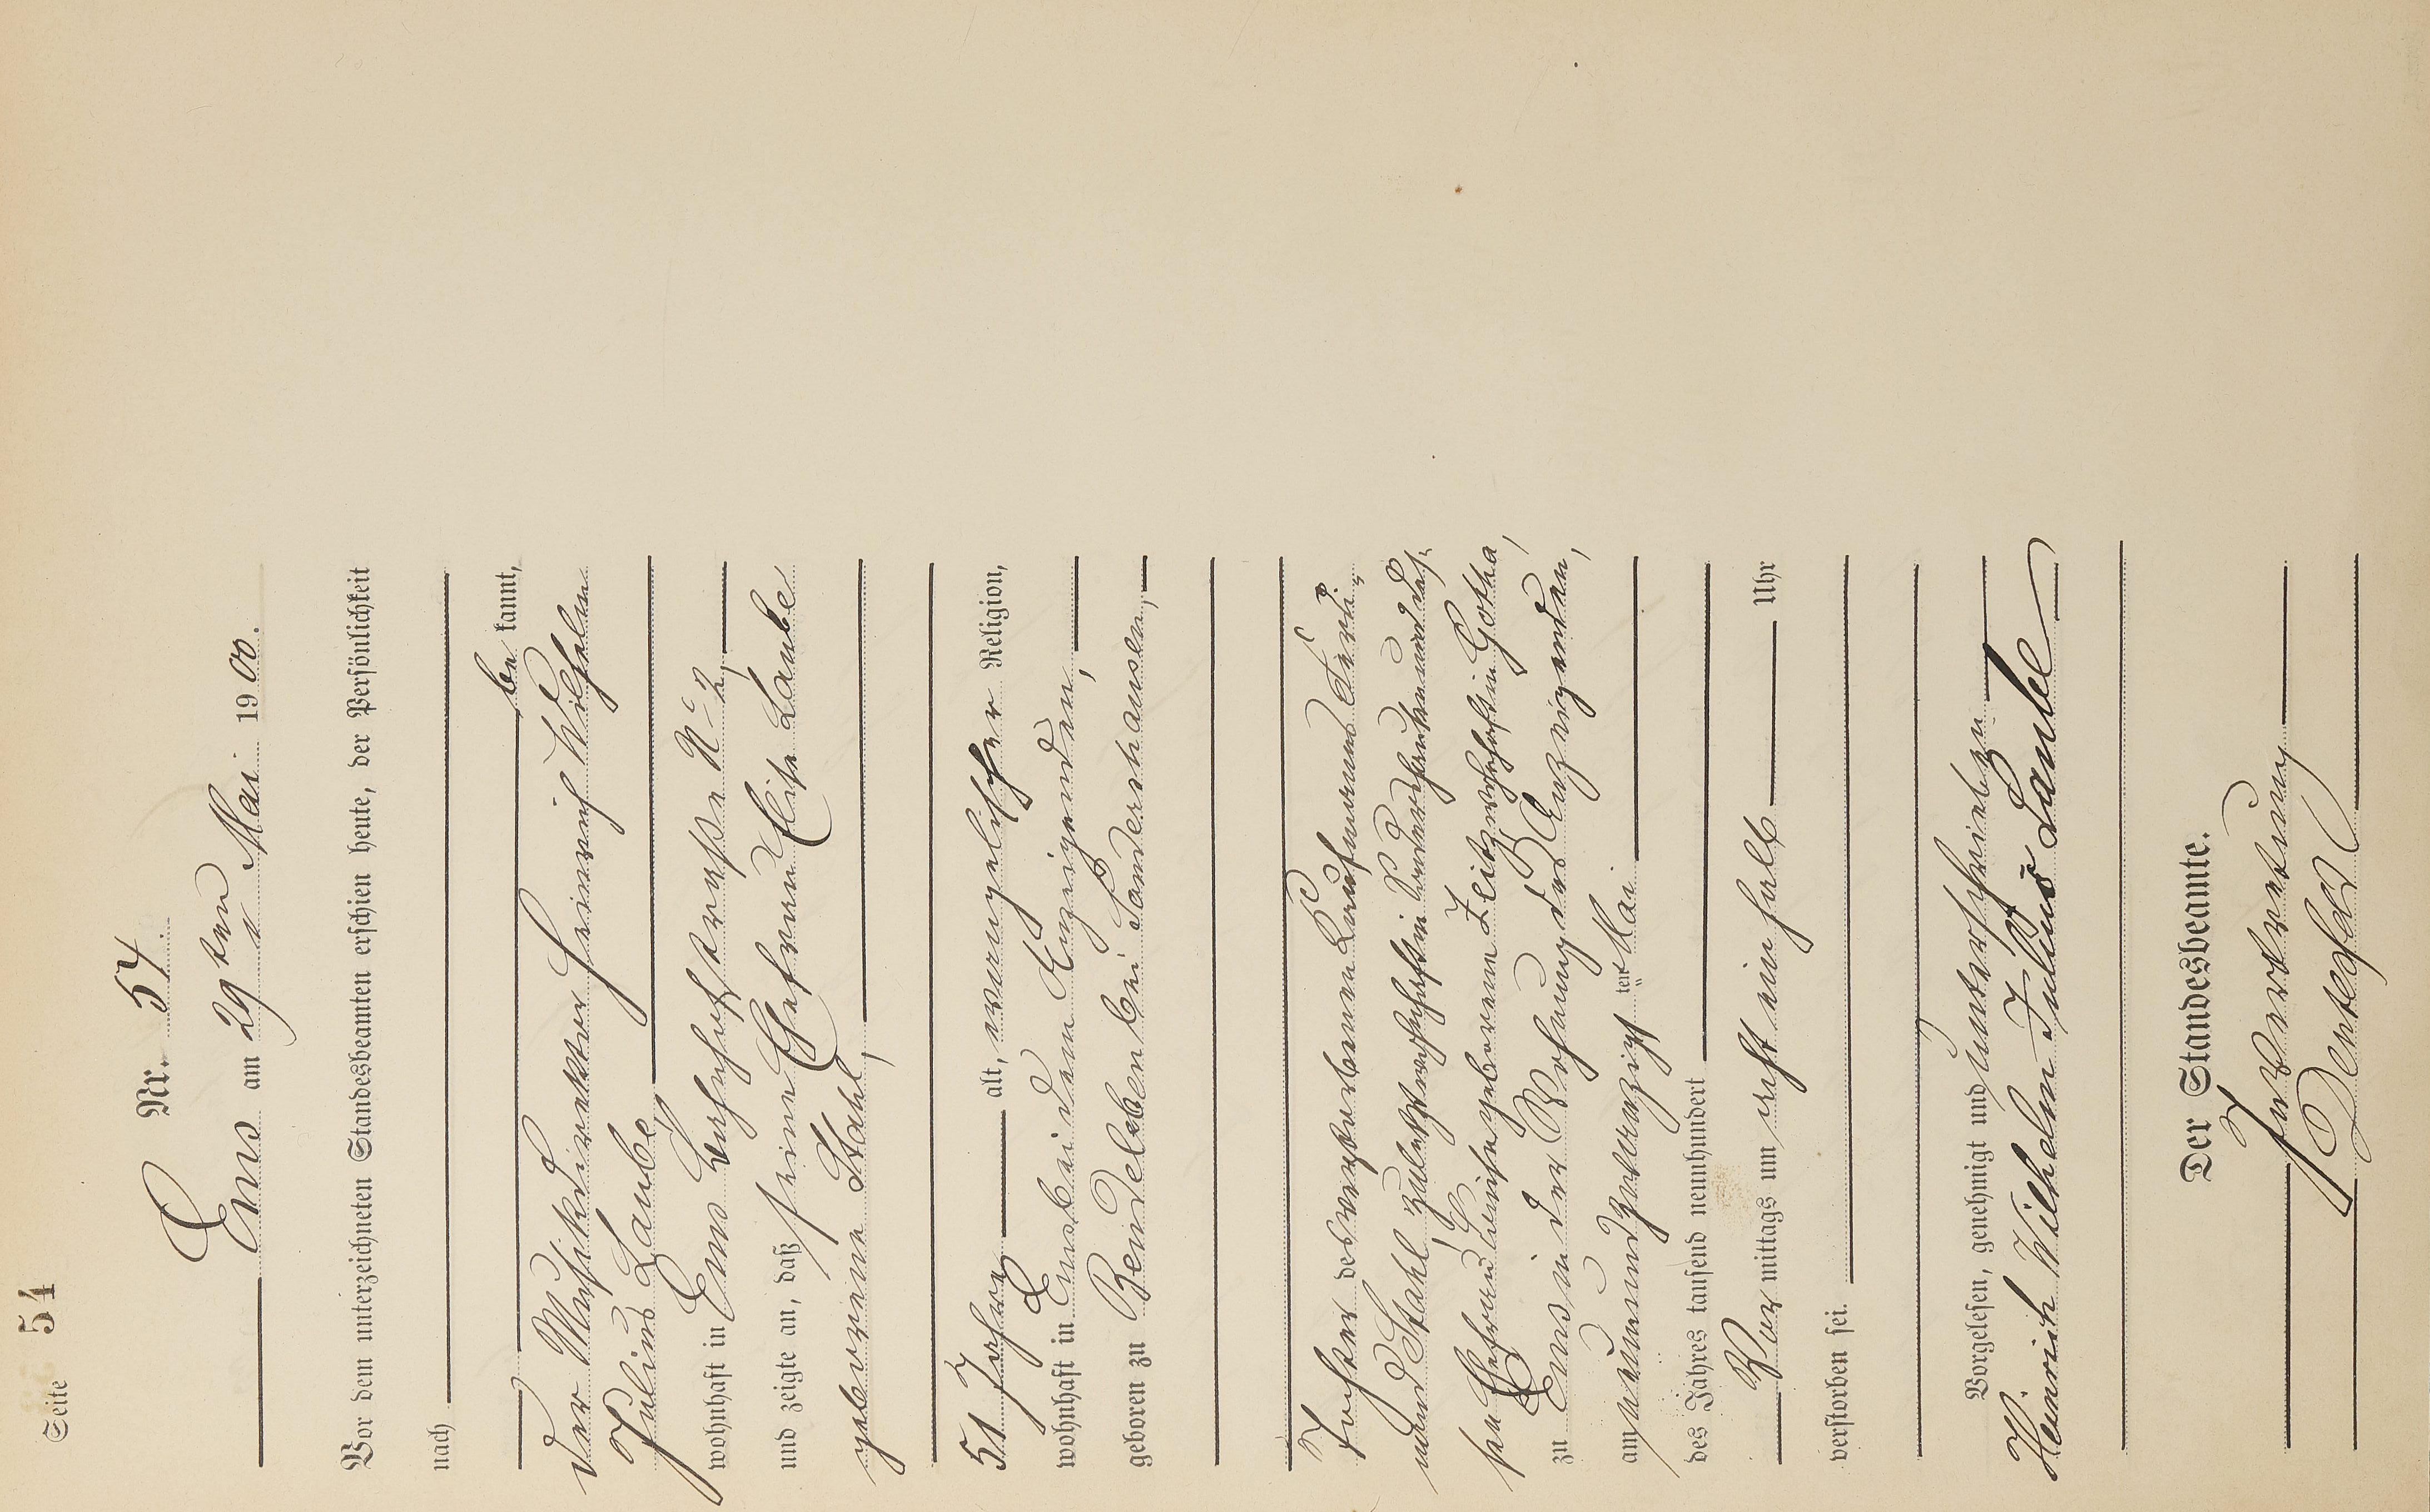 Seite 54
Nr. 54.
Ems am 29ten Mai 1900.
Vor dem unterzeichneten Standesbeamten erschien heute, der Persönlichkeit
nach
bekannt,
der Musikdirektor Heinrich Wilhelm
Julius Laube,
wohnhaft in Ems Bahnhofstraße No 2,
und zeigte an, daß seine Ehefrau Elise Laube
geborene Stahl,
51 Jahre alt, evangelischer Religion,
wohnhaft in Ems bei dem Anzeigenden,
geboren zu Bendeleben bei Sondershausen,
Tochter des verstorbenen Kaufmanns Ferdi-
nand Stahl, zuletzt wohnhaft in Sondershausen und dess-
sen Ehefrau Luise geborene Zeitz wohnhaft in Gotha,
zu Ems in der Wohnung des Anzeigenden,
am neunundzwanzigsten Mai
des Jahres tausend neunhundert
Vormittags um acht ein halb Uhr
verstorben sei.
Vorgelesen, genehmigt und unterschrieben
Heinrich Wilhelm Julius Laube
Der Standesbeamte.
In Vertretung